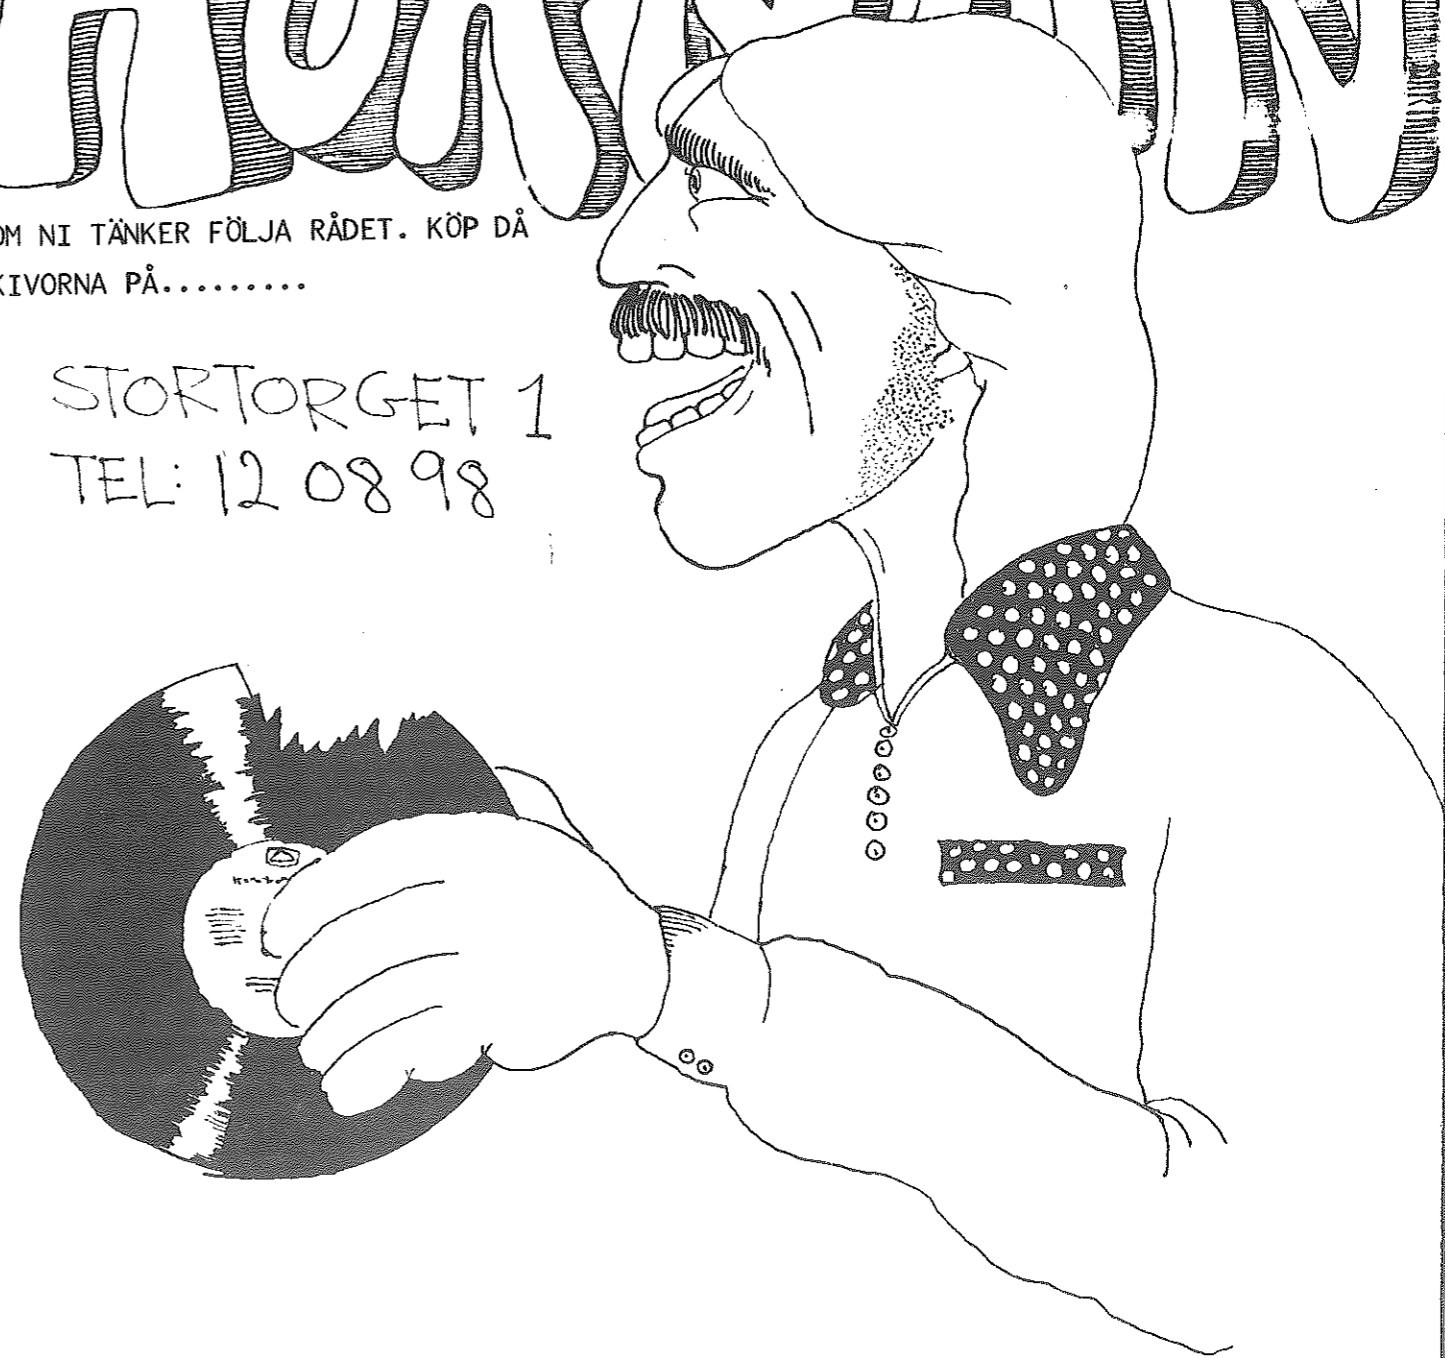 OM NI TÄNKER FÖLJA RÅDET. KÖP DÅ
KIVORNA PÅ.........
STORTORGET 1
TEL: 12 08 98